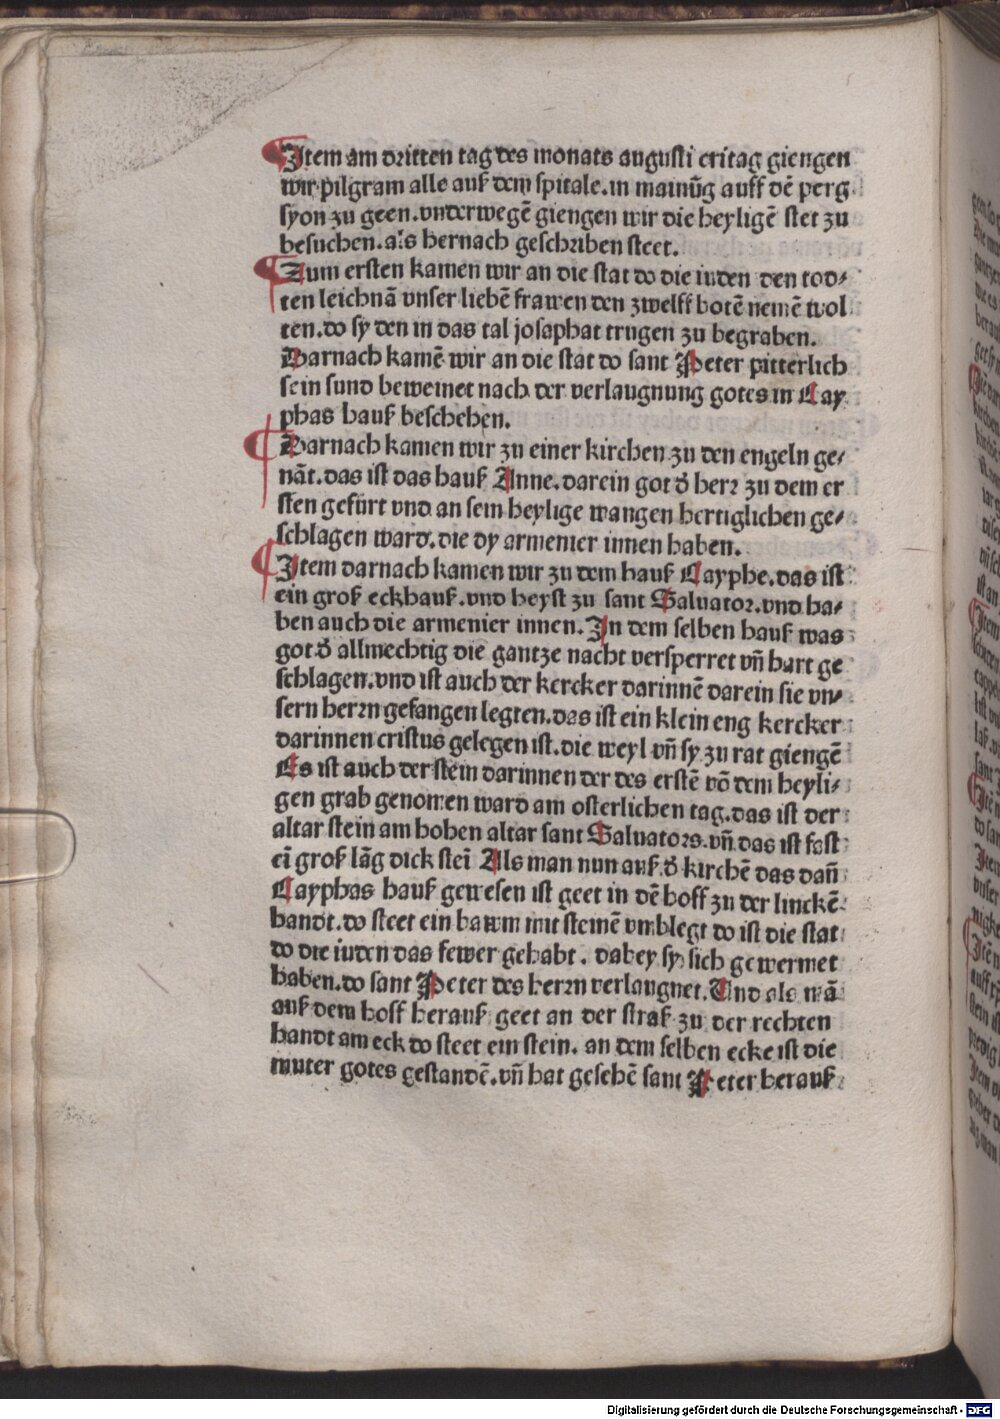 Item am dritten tag des monats augusti eritag giengen
wir pilgram alle auß dem spitale. in mainūg auff dē perg
syon zu geen. vnderwegē giengen wir die heyligē stet zu
besuchen. als hernach geschriben steet.
Zum ersten kamen wir an die stat do die iuden den tod⸗
ten leichnā vnser liebē frawen den zwelff botē nemē wol
ten. do sy den in das tal josaphat trugen zu begraben.
Darnach kamē wir an die stat do sant Peter pitterlich
sein sund beweinet nach der verlaugnung gotes in Cay
phas hauß beschehen.
Darnach kamen wir zu einer kirchen zu den engeln ge⸗
nāt. das ist das hauß Anne. darein got d̕ herr zu dem er
sten gefürt vnd an sein heylige wangen hertiglichen ge⸗
schlagen ward. die dy armenier innen haben.
Item darnach kamen wir zu dem hauß Cayphe. das ist
ein groß eckhauß. vnd heyst zu sant Saluator. vnd ha⸗
ben auch die armenier innen. In dem selben hauß was
got d̕ allmechtig die gantze nacht versperret vn̄ hart ge
schlagen. vnd ist auch der kercker darinnē darein sie vn⸗
sern herrn gefangen legten. das ist ein klein eng kercker
darinnen cristus gelegen ist. die weyl vn̄ sy zu rat giengē
Es ist auch der stein darinnen der des erstē vō dem heyli⸗
gen grab genomen ward am osterlichen tag. das ist der
altar stein am hohen altar sant Saluators. vn̄ das ist fast
ei̅ groß lāg dick stei̅ Als man nun auß d̕ kirchē das dan̄
Cayphas hauß gewesen ist geet in dē hoff zu der linckē
handt. do steet ein bawm mit steinē vmblegt do ist die stat
do die iuden das fewer gehabt. dabey sy sich gewermet
haben. do sant Peter des herrn verlaugnet. Vnd als mā
auß dem hoff herauß geet an der straß zu der rechten
handt am eck do steet ein stein. an dem selben ecke ist die
muter gotes gestandē. vn̄ hat gesehē sant Peter herauß
Digitalisierung gefördert durch die Deutsche Forschungsgemeinschaft - DFG